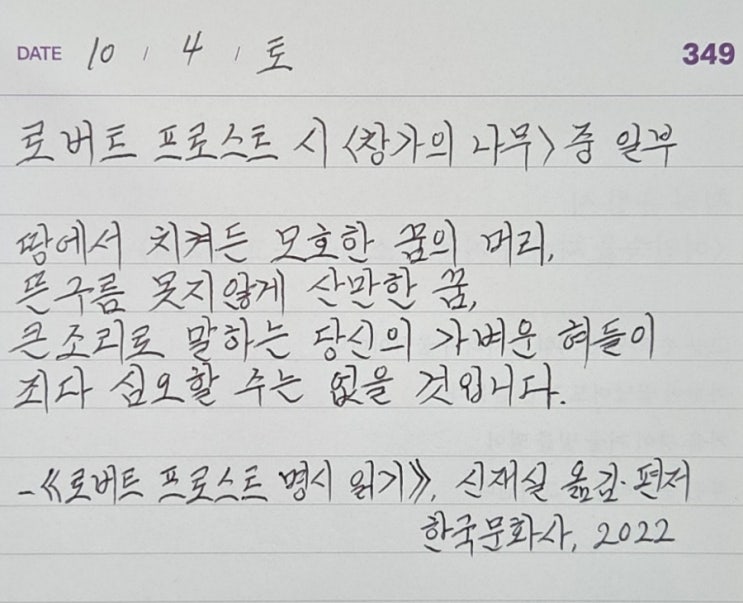 DATE 10 / 4 / 토 349
로버트 프로스트 시 <창가의 나무> 중 일부
땅에서 치켜든 모호한 꿈의 머리,
뜬구름 못지않게 산만한 꿈,
큰 조리로 말하는 당신의 가벼운 혀들이
죄다 심오할 주는 없을 것입니다.
-《로버트 프로스트 명시 읽기》, 신재실 옮김·편저
한국문화사, 2022